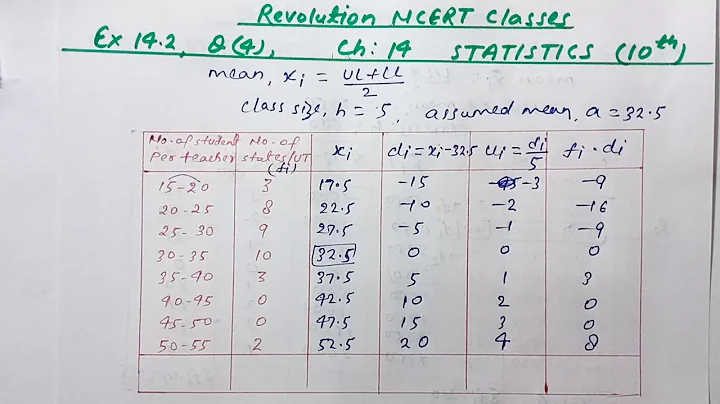 Revolution NCERT Classes
Ex 14.2, Q(4), Ch: 14 STATISTICS (10th)
mean, xi = UL+LL/2
class size, h = 5, assumed mean, a = 32.5
No. of student Per teacher No. of states/UT (fi) xi di = xi-32.5 ui = di/5 fi · di
15-20 3 17.5 -15 -3 -9
20-25 8 22.5 -10 -2 -16
25-30 9 27.5 -5 -1 -9
30-35 10 32.5 0 0 0
35-40 3 37.5 5 1 3
40-45 0 42.5 10 2 0
45-50 0 47.5 15 3 0
50-55 2 52.5 20 4 8